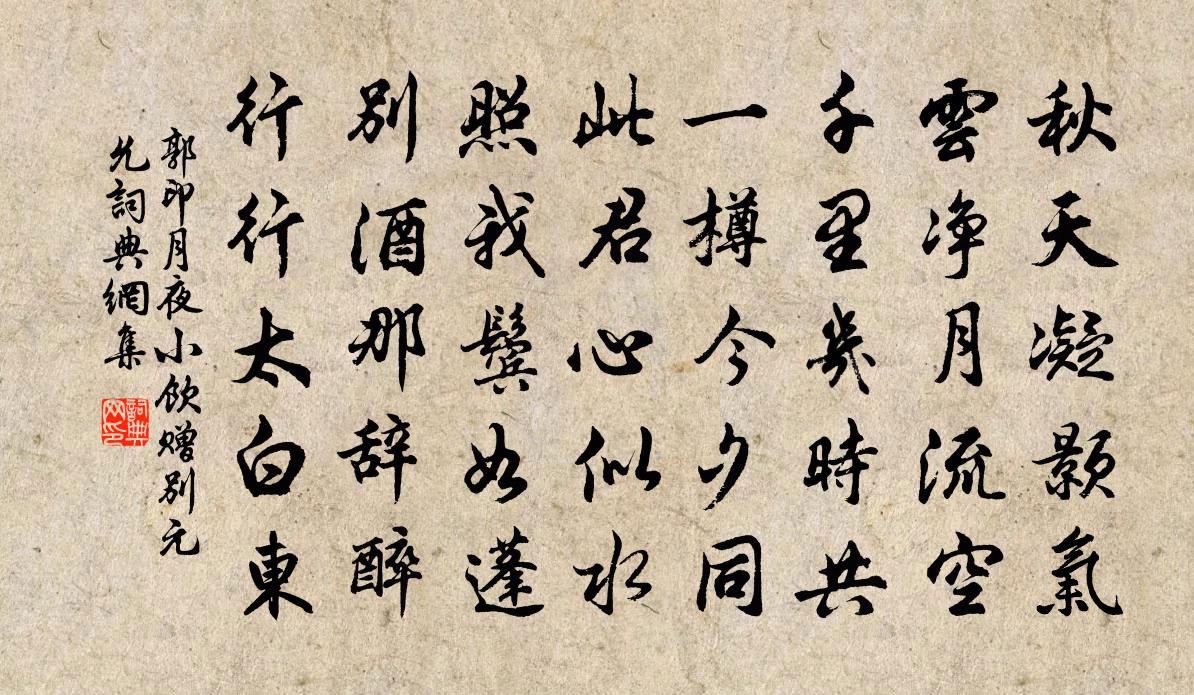 秋天凝顥氣
雲淨月流空
千里幾時共
一樽今夕同
此君心似水
照我鬢如蓬
別酒那辞醉
行行太白東
郭印月夜小飲贈別元
允詞典網集
詞典
网印